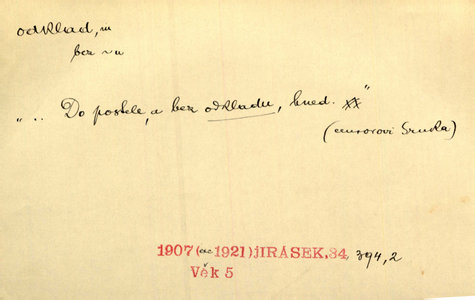 odklad, m
bez ~u
„ .. Do postele, a bez odkladu, hned. "
(censorovi
1907 (ac 1921) JIRÁSEK, 84, 394, 2
Věk 5